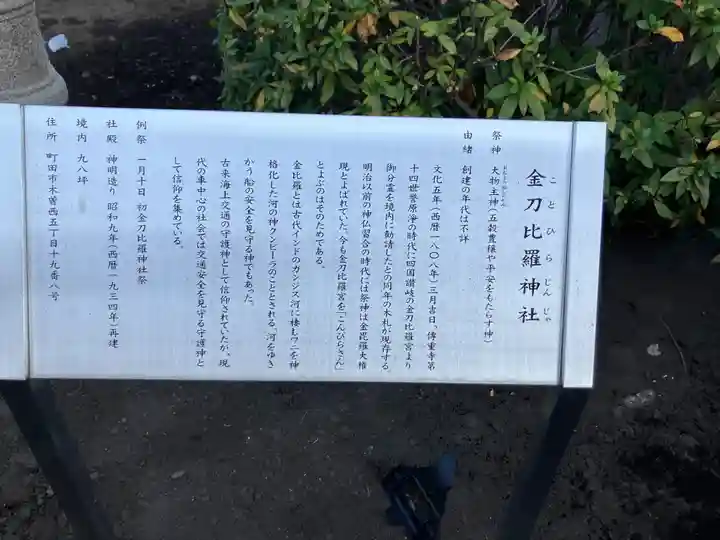 ことひらじんじゃ
金刀比羅神社
祭神 大物主神(五穀豊穣や平安をもたらす神)
由緒 創建の年代は不詳
文化五年(西暦一八〇八年)三月吉日、傳重寺第
十四世誉原浄の時代に四国讃岐の金刀比羅宮より
御分霊を境内に勧請したとの同年の木札が現存する。
明治以前の神仏習合の時代には祭神は金毘羅大権
現とよばれていた。今も金刀比羅宮を「こんぴらさん」
とよぶのはそのためである。
金比羅とは古代インドのガンジス河に棲むワニを神
格化した河の神クンピーラのこととされる。河をゆき
かう船の安全を見守る神でもあった。
古来海上交通の守護神として信仰されていたが、現
代の車中心の社会では交通安全を見守る守護神と
して信仰を集めている。
例祭 一月十日 初金刀比羅神社祭
社殿 神明造り 昭和九年(西暦一九三四年)再建
境内 九八坪
住所 町田市木曽西五丁目十九番八号